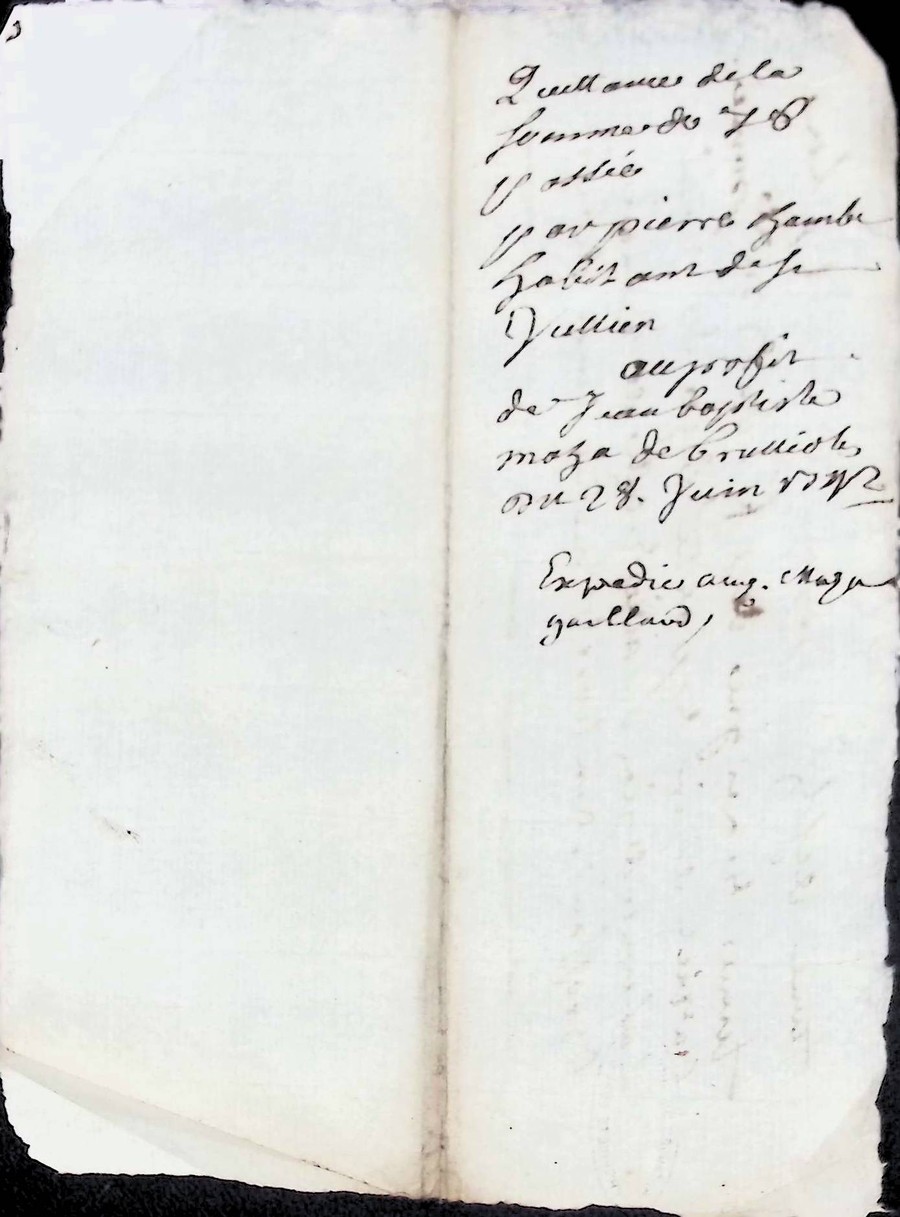 Quittance de la
somme de 78
passée
par pierre Chambe
habitant de St
Jullien
au profit
de Jean baptiste
maza de brullioles
Du 28. Juin
Expedié aug. Maza
gaillard,